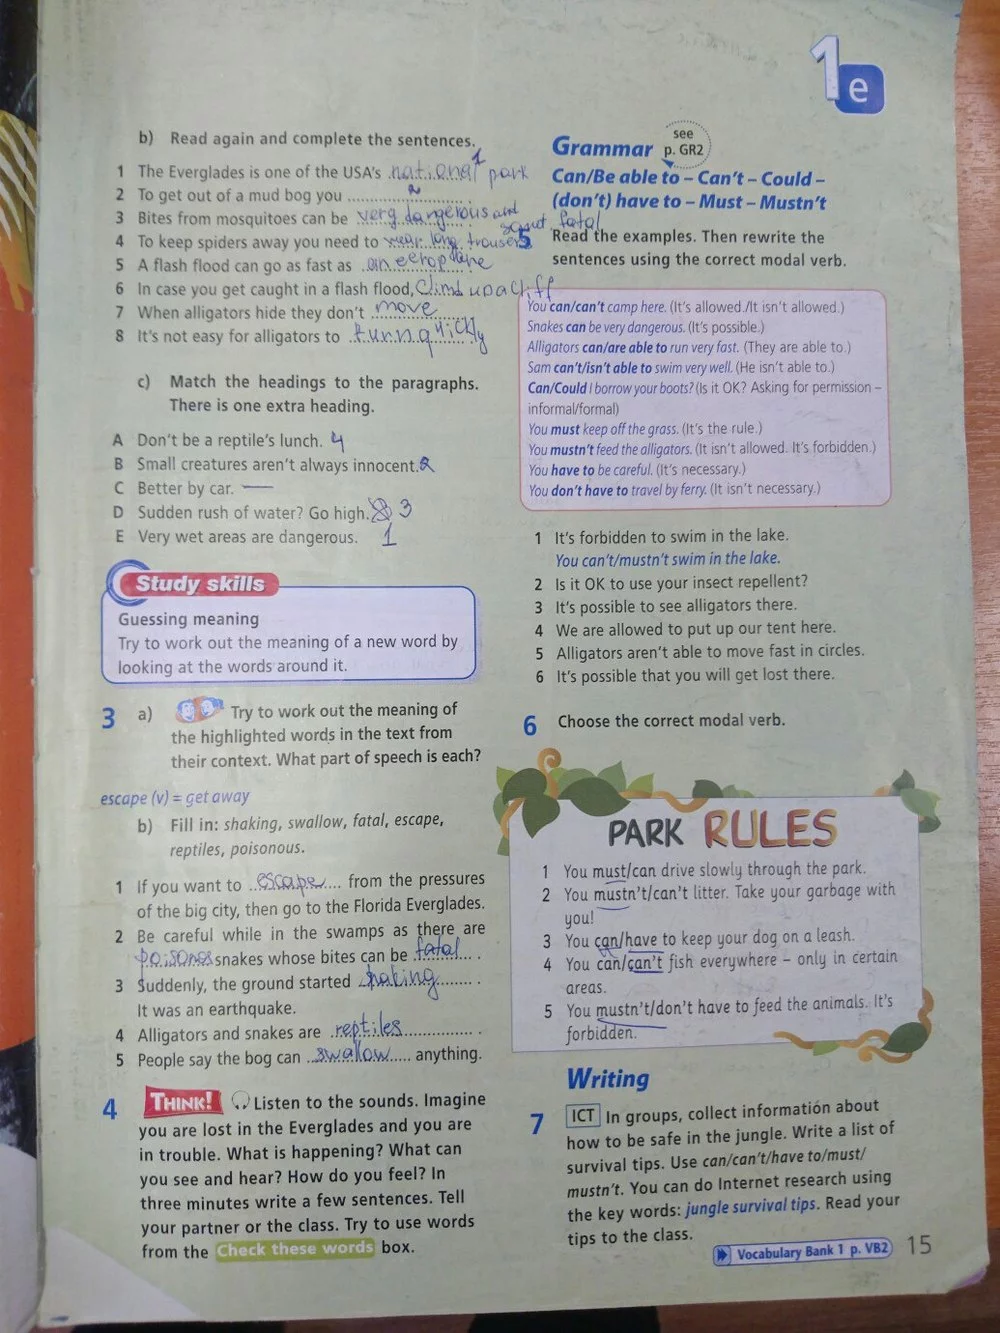 1e
b) Read again and complete the sentences.
1 The Everglades is one of the USA's national park
2 To get out of a mud bog you ........................
3 Bites from mosquitoes can be very dangerous and
fatal
4 To keep spiders away you need to wear long trousers
5 A flash flood can go as fast as an eeroplane
6 In case you get caught in a flash flood, Climb up a Cliff
7 When alligators hide they don't move
8 It's not easy for alligators to turn qickly
c) Match the headings to the paragraphs.
There is one extra heading.
A Don't be a reptile's lunch. 4
B Small creatures aren't always innocent. 2
C Better by car. —
D Sudden rush of water? Go high. 3
E Very wet areas are dangerous. 1
Study skills
Guessing meaning
Try to work out the meaning of a new word by
looking at the words around it.
3 a) Try to work out the meaning of
the highlighted words in the text from
their context. What part of speech is each?
escape (v) = get away
b) Fill in: shaking, swallow, fatal, escape,
reptiles, poisonous.
1 If you want to escape from the pressures
of the big city, then go to the Florida Everglades.
2 Be careful while in the swamps as there are
snakes whose bites can be fatal .
3 Suddenly, the ground started shaking .
It was an earthquake.
4 Alligators and snakes are reptiles .
5 People say the bog can swallow anything.
4 THINK! Listen to the sounds. Imagine
you are lost in the Everglades and you are
in trouble. What is happening? What can
you see and hear? How do you feel? In
three minutes write a few sentences. Tell
your partner or the class. Try to use words
from the Check these words box.
Grammar see p. GR2
Can/Be able to – Can't – Could –
(don't) have to – Must – Mustn't
5 Read the examples. Then rewrite the
sentences using the correct modal verb.
You can/can't camp here. (It's allowed./It isn't allowed.)
Snakes can be very dangerous. (It's possible.)
Alligators can/are able to run very fast. (They are able to.)
Sam can't/isn't able to swim very well. (He isn't able to.)
Can/Could I borrow your boots? (Is it OK? Asking for permission –
informal/formal)
You must keep off the grass. (It's the rule.)
You mustn't feed the alligators. (It isn't allowed. It's forbidden.)
You have to be careful. (It's necessary.)
You don't have to travel by ferry. (It isn't necessary.)
1 It's forbidden to swim in the lake.
You can't/mustn't swim in the lake.
2 Is it OK to use your insect repellent?
3 It's possible to see alligators there.
4 We are allowed to put up our tent here.
5 Alligators aren't able to move fast in circles.
6 It's possible that you will get lost there.
6 Choose the correct modal verb.
PARK RULES
1 You must/can drive slowly through the park.
2 You mustn't/can't litter. Take your garbage with
you!
3 You can/have to keep your dog on a leash.
4 You can/can't fish everywhere – only in certain
areas.
5 You mustn't/don't have to feed the animals. It's
forbidden.
Writing
7 ICT In groups, collect information about
how to be safe in the jungle. Write a list of
survival tips. Use can/can't/have to/must/
mustn't. You can do Internet research using
the key words: jungle survival tips. Read your
tips to the class.
Vocabulary Bank 1 p. VB2
15